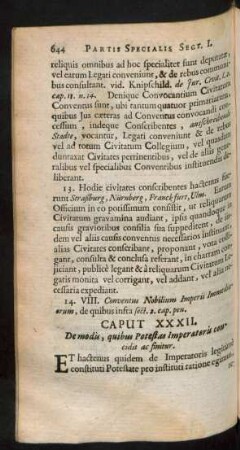 644 PARTIS SPECIALIS SECT. I.
reliquis omnibus ad hoc specialiter sunt deputatæ,
vel earum Legati conveniunt, & de rebus communi-
bus consultant. vid. Knipschild. de Jur. Civit. l. 2.
cap. 18. n. 14. Denique Convocantium Civitatum
Conventus sunt, ubi tantum quatuor primariarum
quibus Jus cæteras ad Conventus convocandi con-
cessum, indeque Conscribentes, ausschreibende
Stædte, vocantur, Legati conveniunt & de rebus
vel ad totum Civitatum Collegium, vel quasdam
duntaxat Civitates pertinentibus, vel de aliis gene-
ralibus vel specialibus Conventibus instituendis de-
liberant.
13. Hodie civitates conscribentes hactenus fue-
runt Straßburg, Nürnberg, Franckfurt, Ulm. Earum
Officium in eo potissimum consistit, ut reliquarum
Civitatum gravamina audiant, ipsis quandoque in
causis gravioribus consilia sua suppeditent, & ibi-
dem vel aliis causis conventus necessarios instituant,
alias Civitates conscribant, proponant, vota colli-
gant, consulta & conclusa referant, in chartam con-
jiciant, publicè legant & à reliquarum Civitatum Le-
gatis monita vel corrigant, vel addant, vel alia ne-
cessaria expediant.
14. VIII. Conventus Nobilium Imperii Immediat-
orum, de quibus infra sect. 2. cap. pen.
CAPUT XXXII.
De modis, quibus Potestas Imperatoris con-
cidit ac finitur.
ET hactenus quidem de Imperatoris legitimè
constituti Potestate pro instituti ratione egimus,